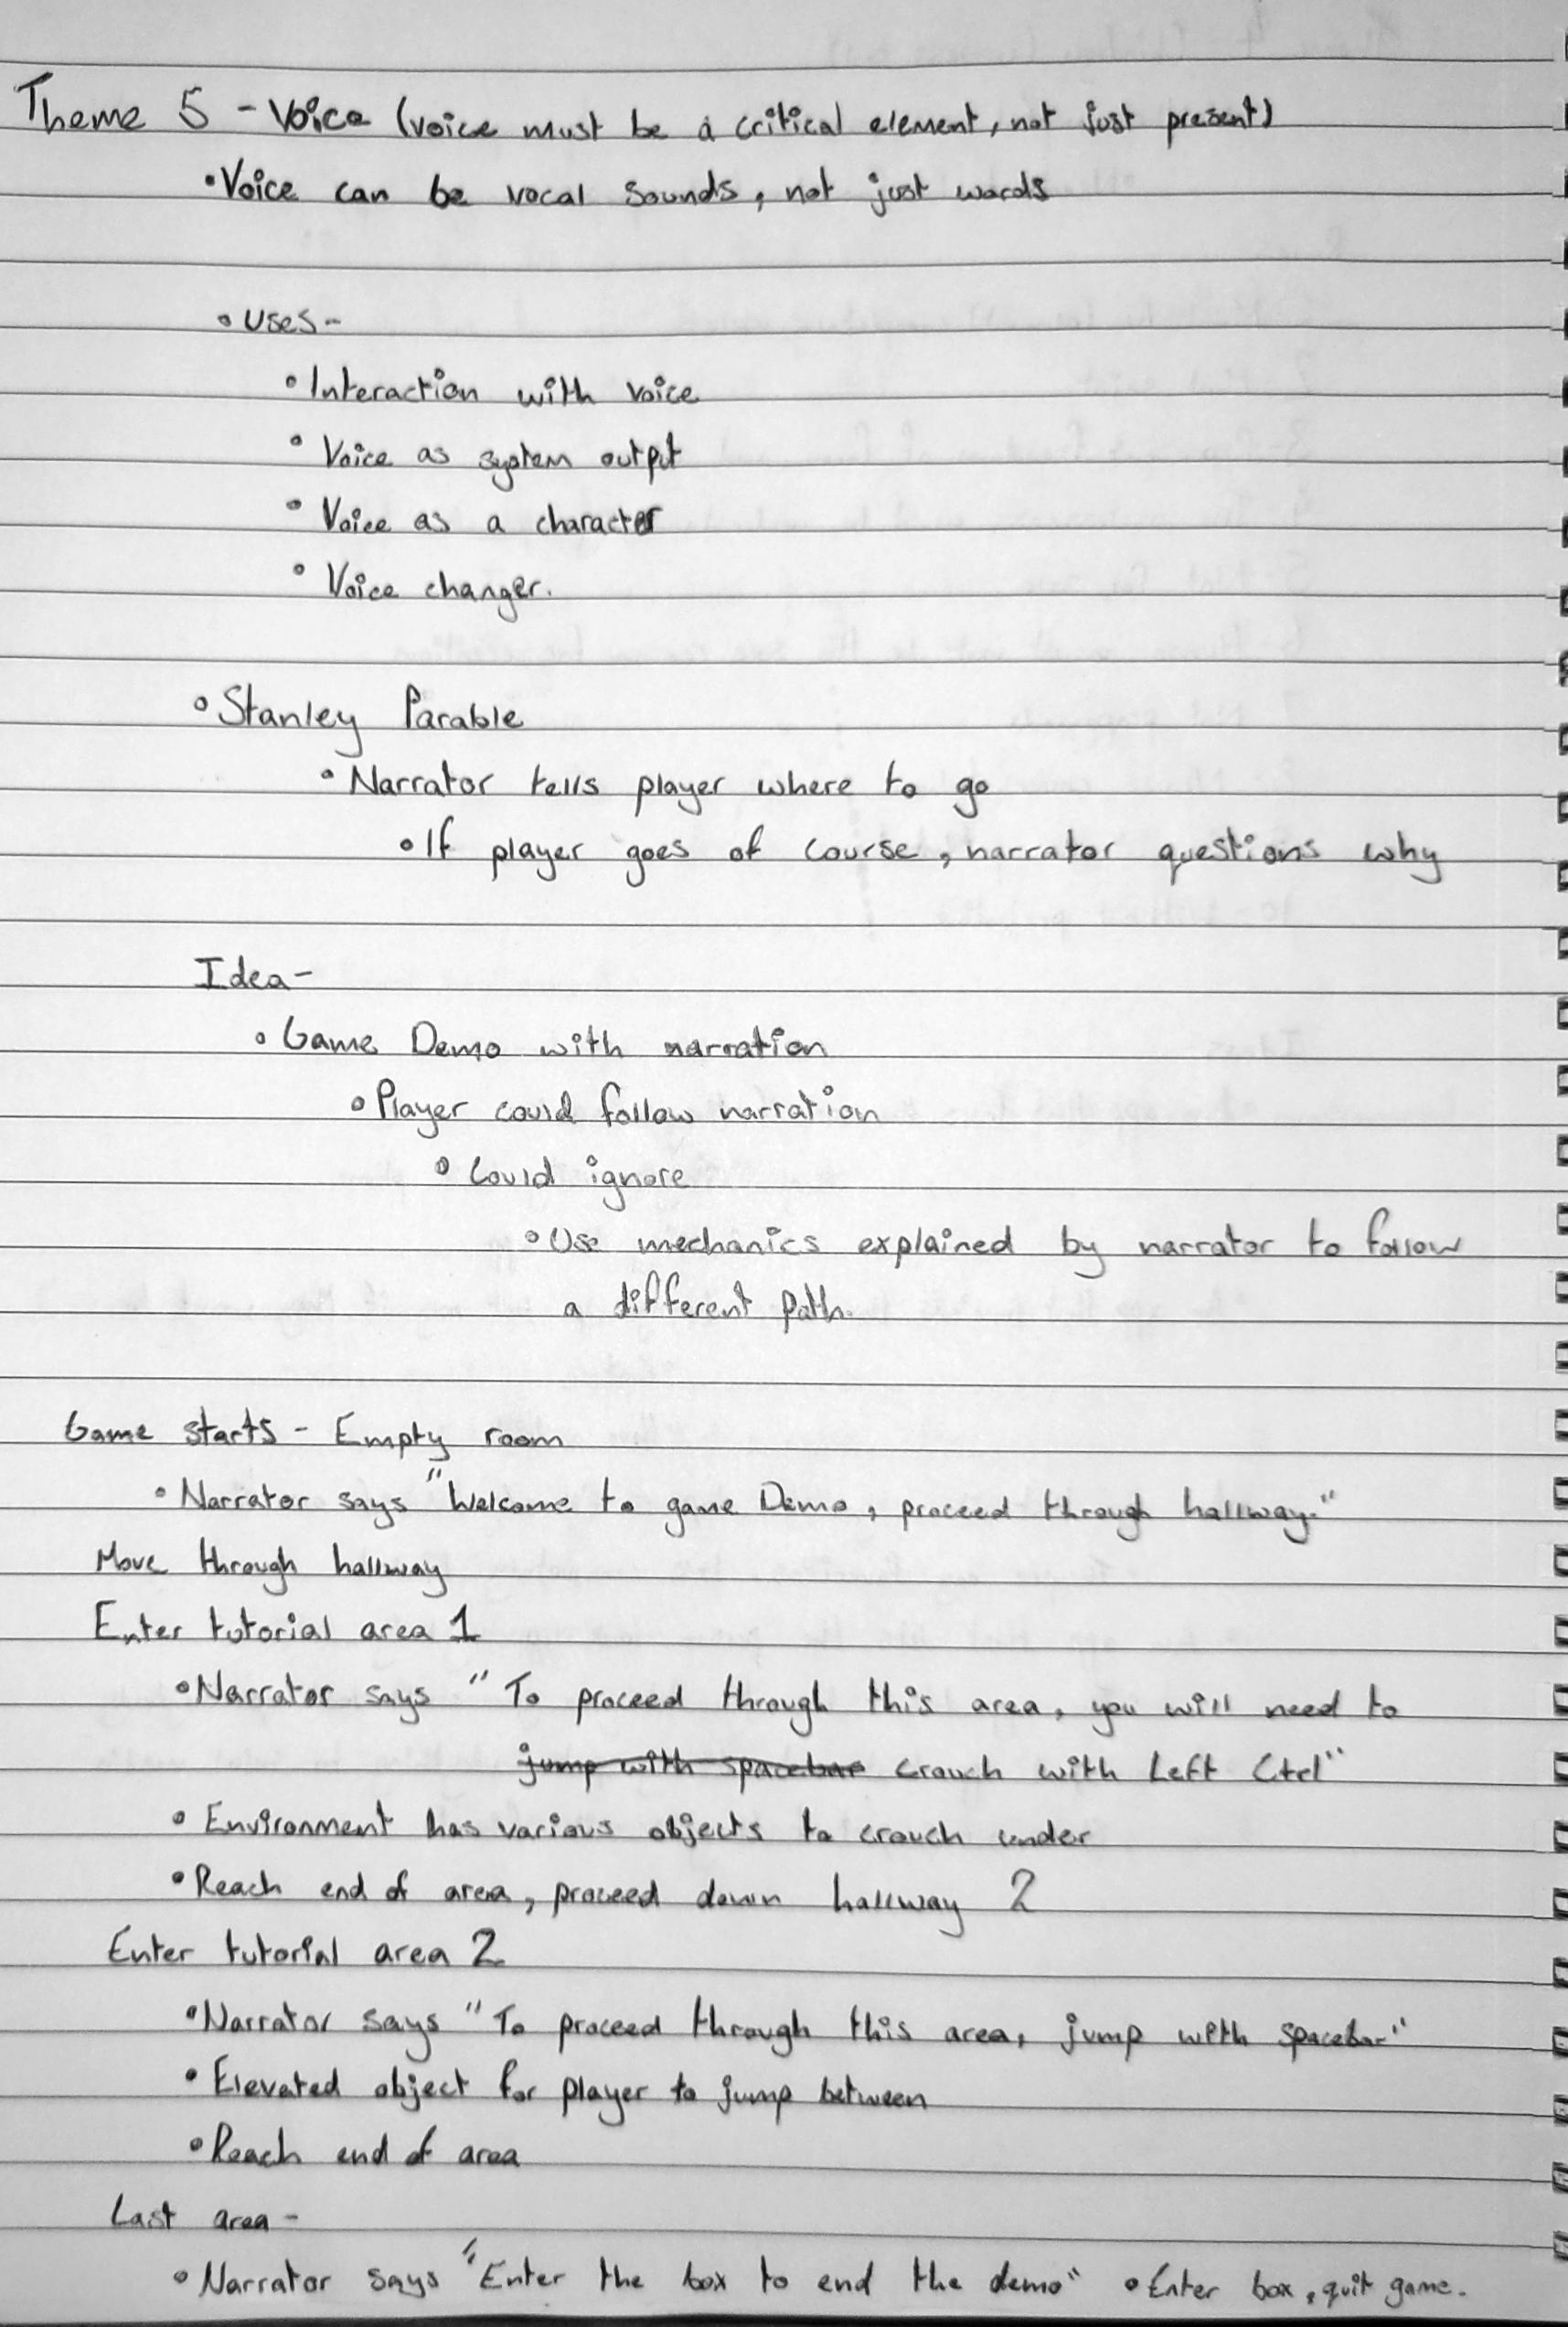 Theme 5 - Voice (voice must be a critical element, not just present)
• Voice can be vocal sounds, not just words
• Uses -
• Interaction with voice
• Voice as system output
• Voice as a character
• Voice changer.
• Stanley Parable
• Narrator tells player where to go
• If player goes of course, narrator questions why
Idea -
• Game Demo with narration
• Player could follow narration
• Could ignore
• Use mechanics explained by narrator to follow
a different path.
Game starts - Empty room
• Narrator says "Welcome to game Demo, proceed through hallway."
Move through hallway
Enter tutorial area 1
• Narrator says "To proceed through this area, you will need to
jump with spacebar crouch with Left Ctrl"
• Environment has various objects to crouch under
• Reach end of area, proceed down hallway 2
Enter tutorial area 2
• Narrator says "To proceed through this area, jump with spacebar"
• Elevated object for player to jump between
• Reach end of area
Last area -
• Narrator says "Enter the box to end the demo" • Enter box, quit game.